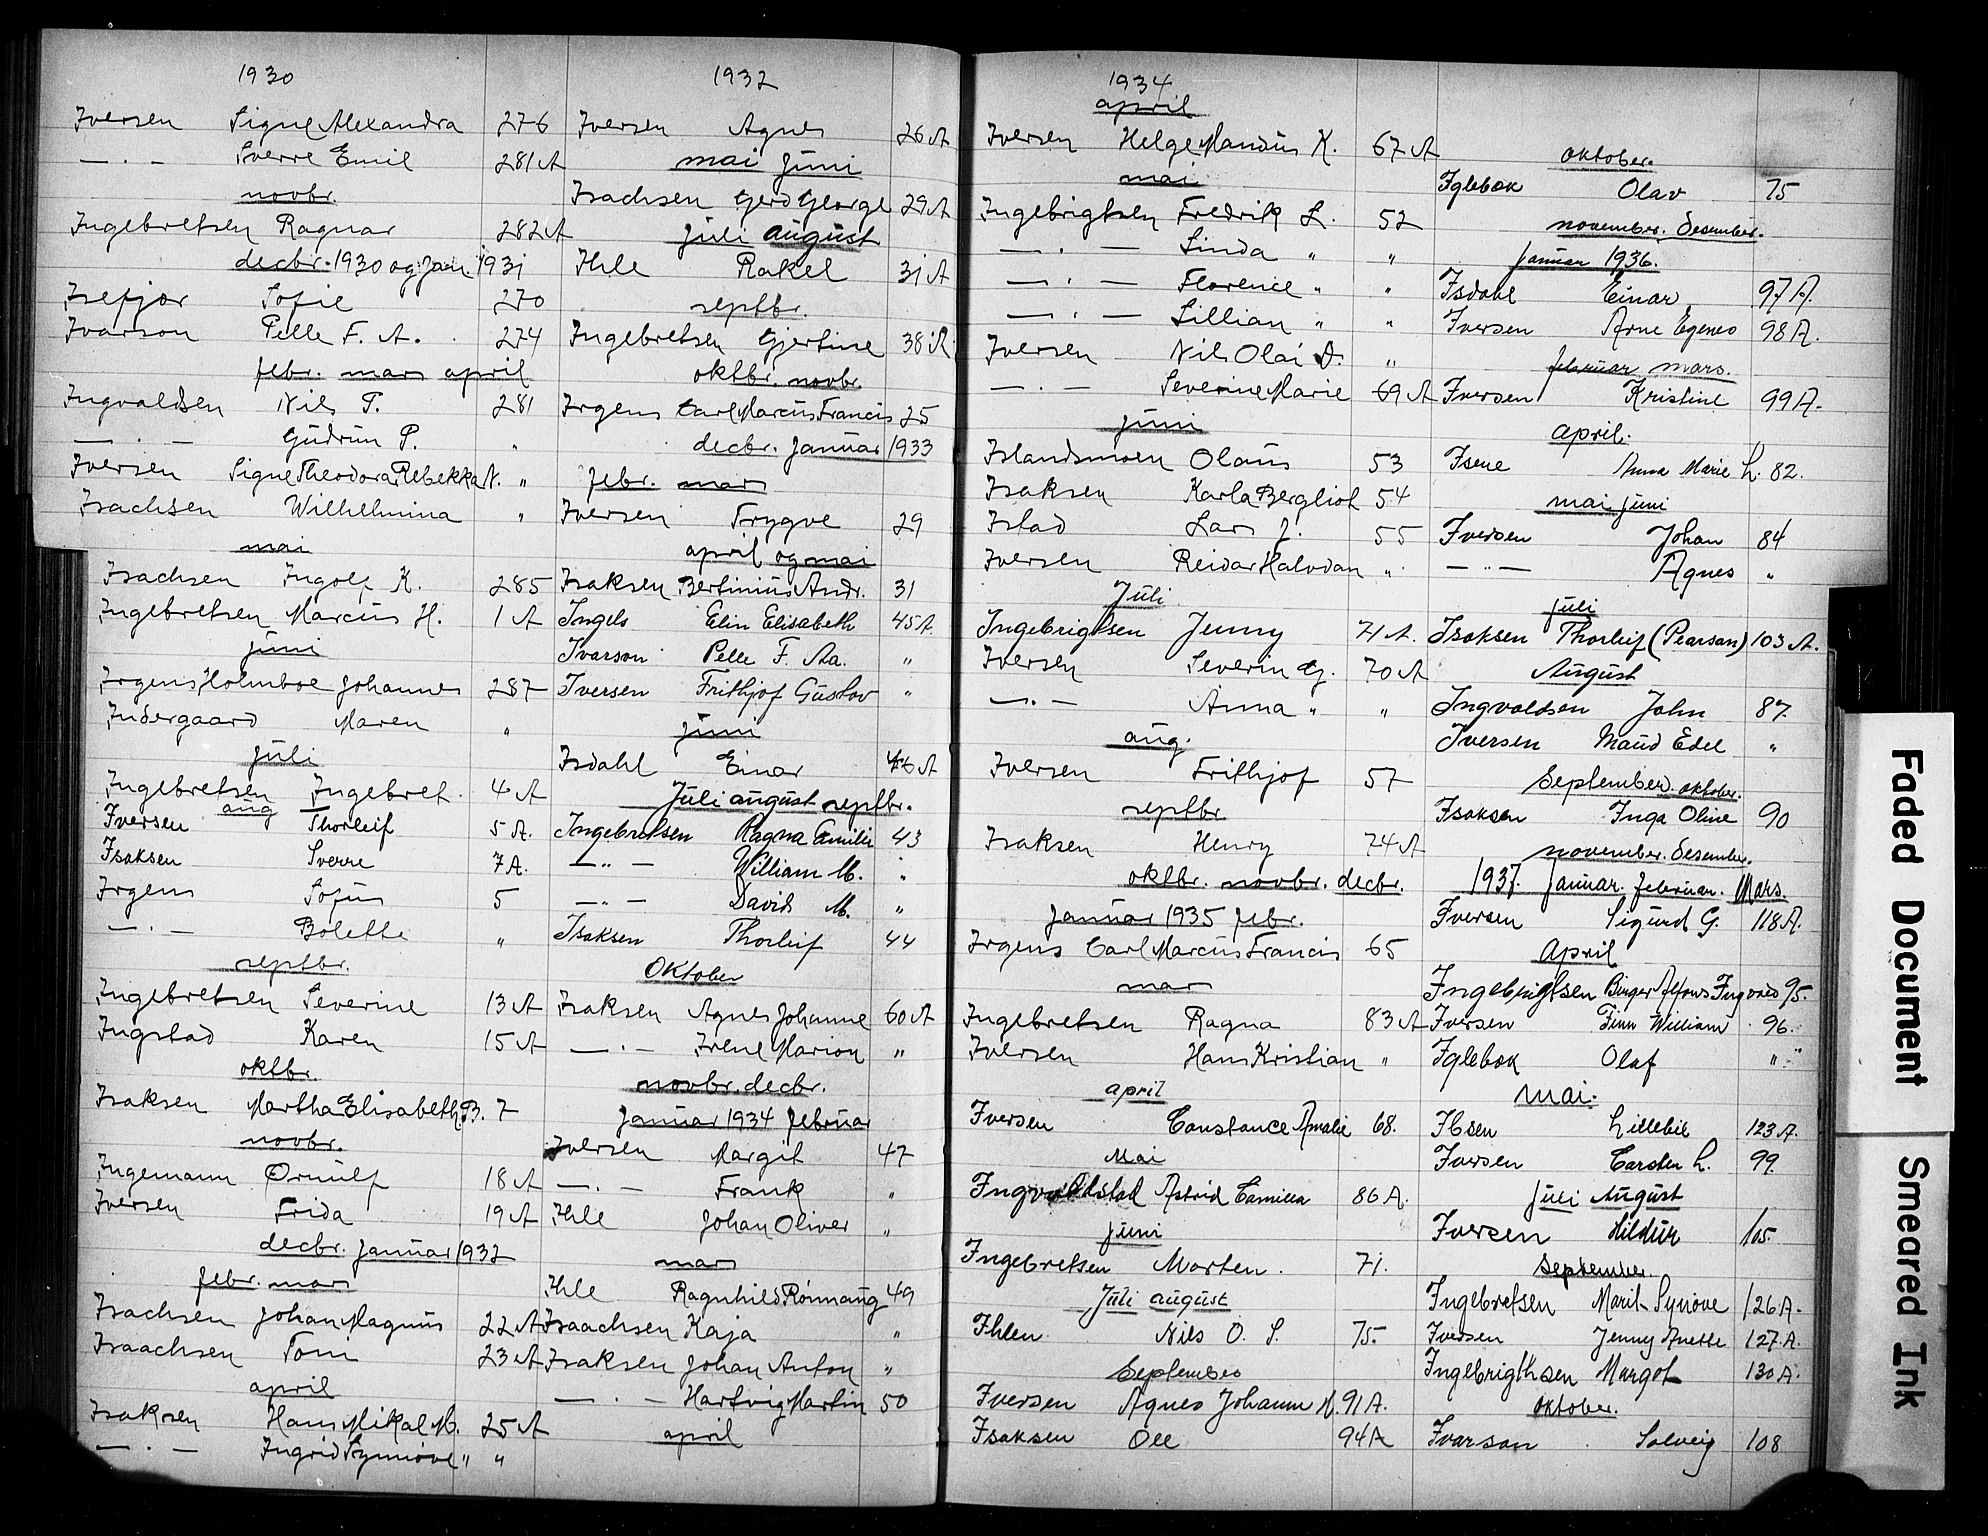 1930
Iversen Signe Alexandra 276
— . — Sverre Emil 281 A
novbr.
Ingebretsen Ragnar 282 A
decbr. 1930 og jan. 1931
Isefjær Sofie 270
Ivarson Pelle F. A. 274
febr. mars april
Ingvaldsen Nils T. 281
— . — Gudrun P. "
Iversen Signe Theodora Rebekka N. "
Isachsen Wilhelmina "
mai
Isachsen Ingolf K. 285
Ingebretsen Marcus H. 1 A
juni
Irgens, Holmboe Johannes 287
Indergaard Maren "
juli
Ingebretsen Ingebret 4 A
aug
Iversen Thorleif 5 A.
Isaksen Sverre 7 A.
Irgens Sofus 5
— . — Bolette "
septbr.
Ingebretsen Severine 13 A
Ingstad Karen 15 A
oktbr.
Isaksen Martha Elisabeth B. 7
novbr.
Ingemann Ørnulf 18 A
Iversen Frida 19 A
decbr. januar 1932
febr. mars
Isachsen Johan Magnus 22 A
Isaachsen Toni 23 A
april
Isaksen Hans Mikal M. 25 A
— . — Ingrid Synnøve " "
1932
Iversen Agnes 26 A
mai juni
Isachsen Gerd George 29 A
juli august
Ihle Rakel 31 A
septbr.
Ingebretsen Gjertine 38 A
oktbr. novbr.
Irgens Carl Marcus Francis 25
decbr. januar 1933
febr. mars
Iversen Trygve 29
april og mai
Isaksen Bertinius Andr. 31
Ingels Elin Elisabeth 45 A.
Ivarson Pelle F. Aa. "
Iversen Frithjof Gustav "
juni
Isdahl Einar 46 A
Juli august septbr.
Ingebretsen Ragna Emilie 43
— .. — William M. "
— .. — David M. "
Isaksen Thorleif 44
Oktober
Isaksen Agnes Johanne 60 A
— . — Irene Marion "
novbr. decbr.
januar 1934 februar
Iversen Margit 47
— . — Frank "
Ihle Johan Oliver "
mars
Ihle Ragnhild Rønnaug 49
Isaachsen Kaja "
Isaksen Johan Anton "
— . — Hartvig Martin 50
april
1934
april
Iversen Helge Mandius K. 67 A
mai
Ingebrigtsen Fredrik L. 52
— . — Linda " "
— . — Florence " "
— . — Lillian " "
Iversen Nils Olai D. "
— . — Severine Marie 69 A
juni
Islandsmoen Olaus 53
Isaksen Karla Bergliot 54
Istad Lars J. 55
Iversen Reidar Halvdan "
Juli
Ingebrigtsen Jenny 71 A.
Iversen Severin G. 70 A
— . — Anna " "
aug.
Iversen Frithjof 57
septbr
Isaksen Henry 74 A
oktbr. novbr. decbr.
Januar 1935 febr.
Irgens Carl Marcus Francis 65
mars
Ingebretsen Ragna 83 A
Iversen Hans Kristian "
april
Iversen Constance Amalie 68.
Mai
Astrid Camilla 86 A.
juni
Ingebretsen Morten. 71.
Juli august
Ihlen Nils O. S. 75.
September
Iversen Agnes Johanne M. 91 A.
Isaksen Ole 94 A
oktober.
Iglebæk Olav 75
november. desember.
januar 1936.
Isdahl Einar 97 A.
Iversen Arne Egenes 98 A.
februar mars.
Iversen Kristine 99 A.
april.
Isene Anna Marie L. 82.
mai juni
Iversen Johan 84
— .. — Agnes "
juli
Isaksen Thorleif (Pearsan) 103 A.
August
Ingvaldsen John 87.
Iversen Maud Edel "
September. oktober.
Isaksen Inga Oline 90
november. desember.
1937. Januar. februar. Mars.
Iversen Sigurd G. 118 A.
April
Ingebrigtsen Birger Alfons Ingvald 95.
Iversen Finn William 96.
Iglebæk Olaf " "
Mai.
Ibsen Lillebil 123 A.
Iversen Carsten L. 99.
Juli August
Iversen Hildur 105.
September
Ingebretsen Marit Synnøve 126 A.
Iversen Jenny Anette 127 A.
Ingebrigthsen Margot 130 A.
Oktober.
Ivarson Solveig 108
Faded Document
Smeared Ink